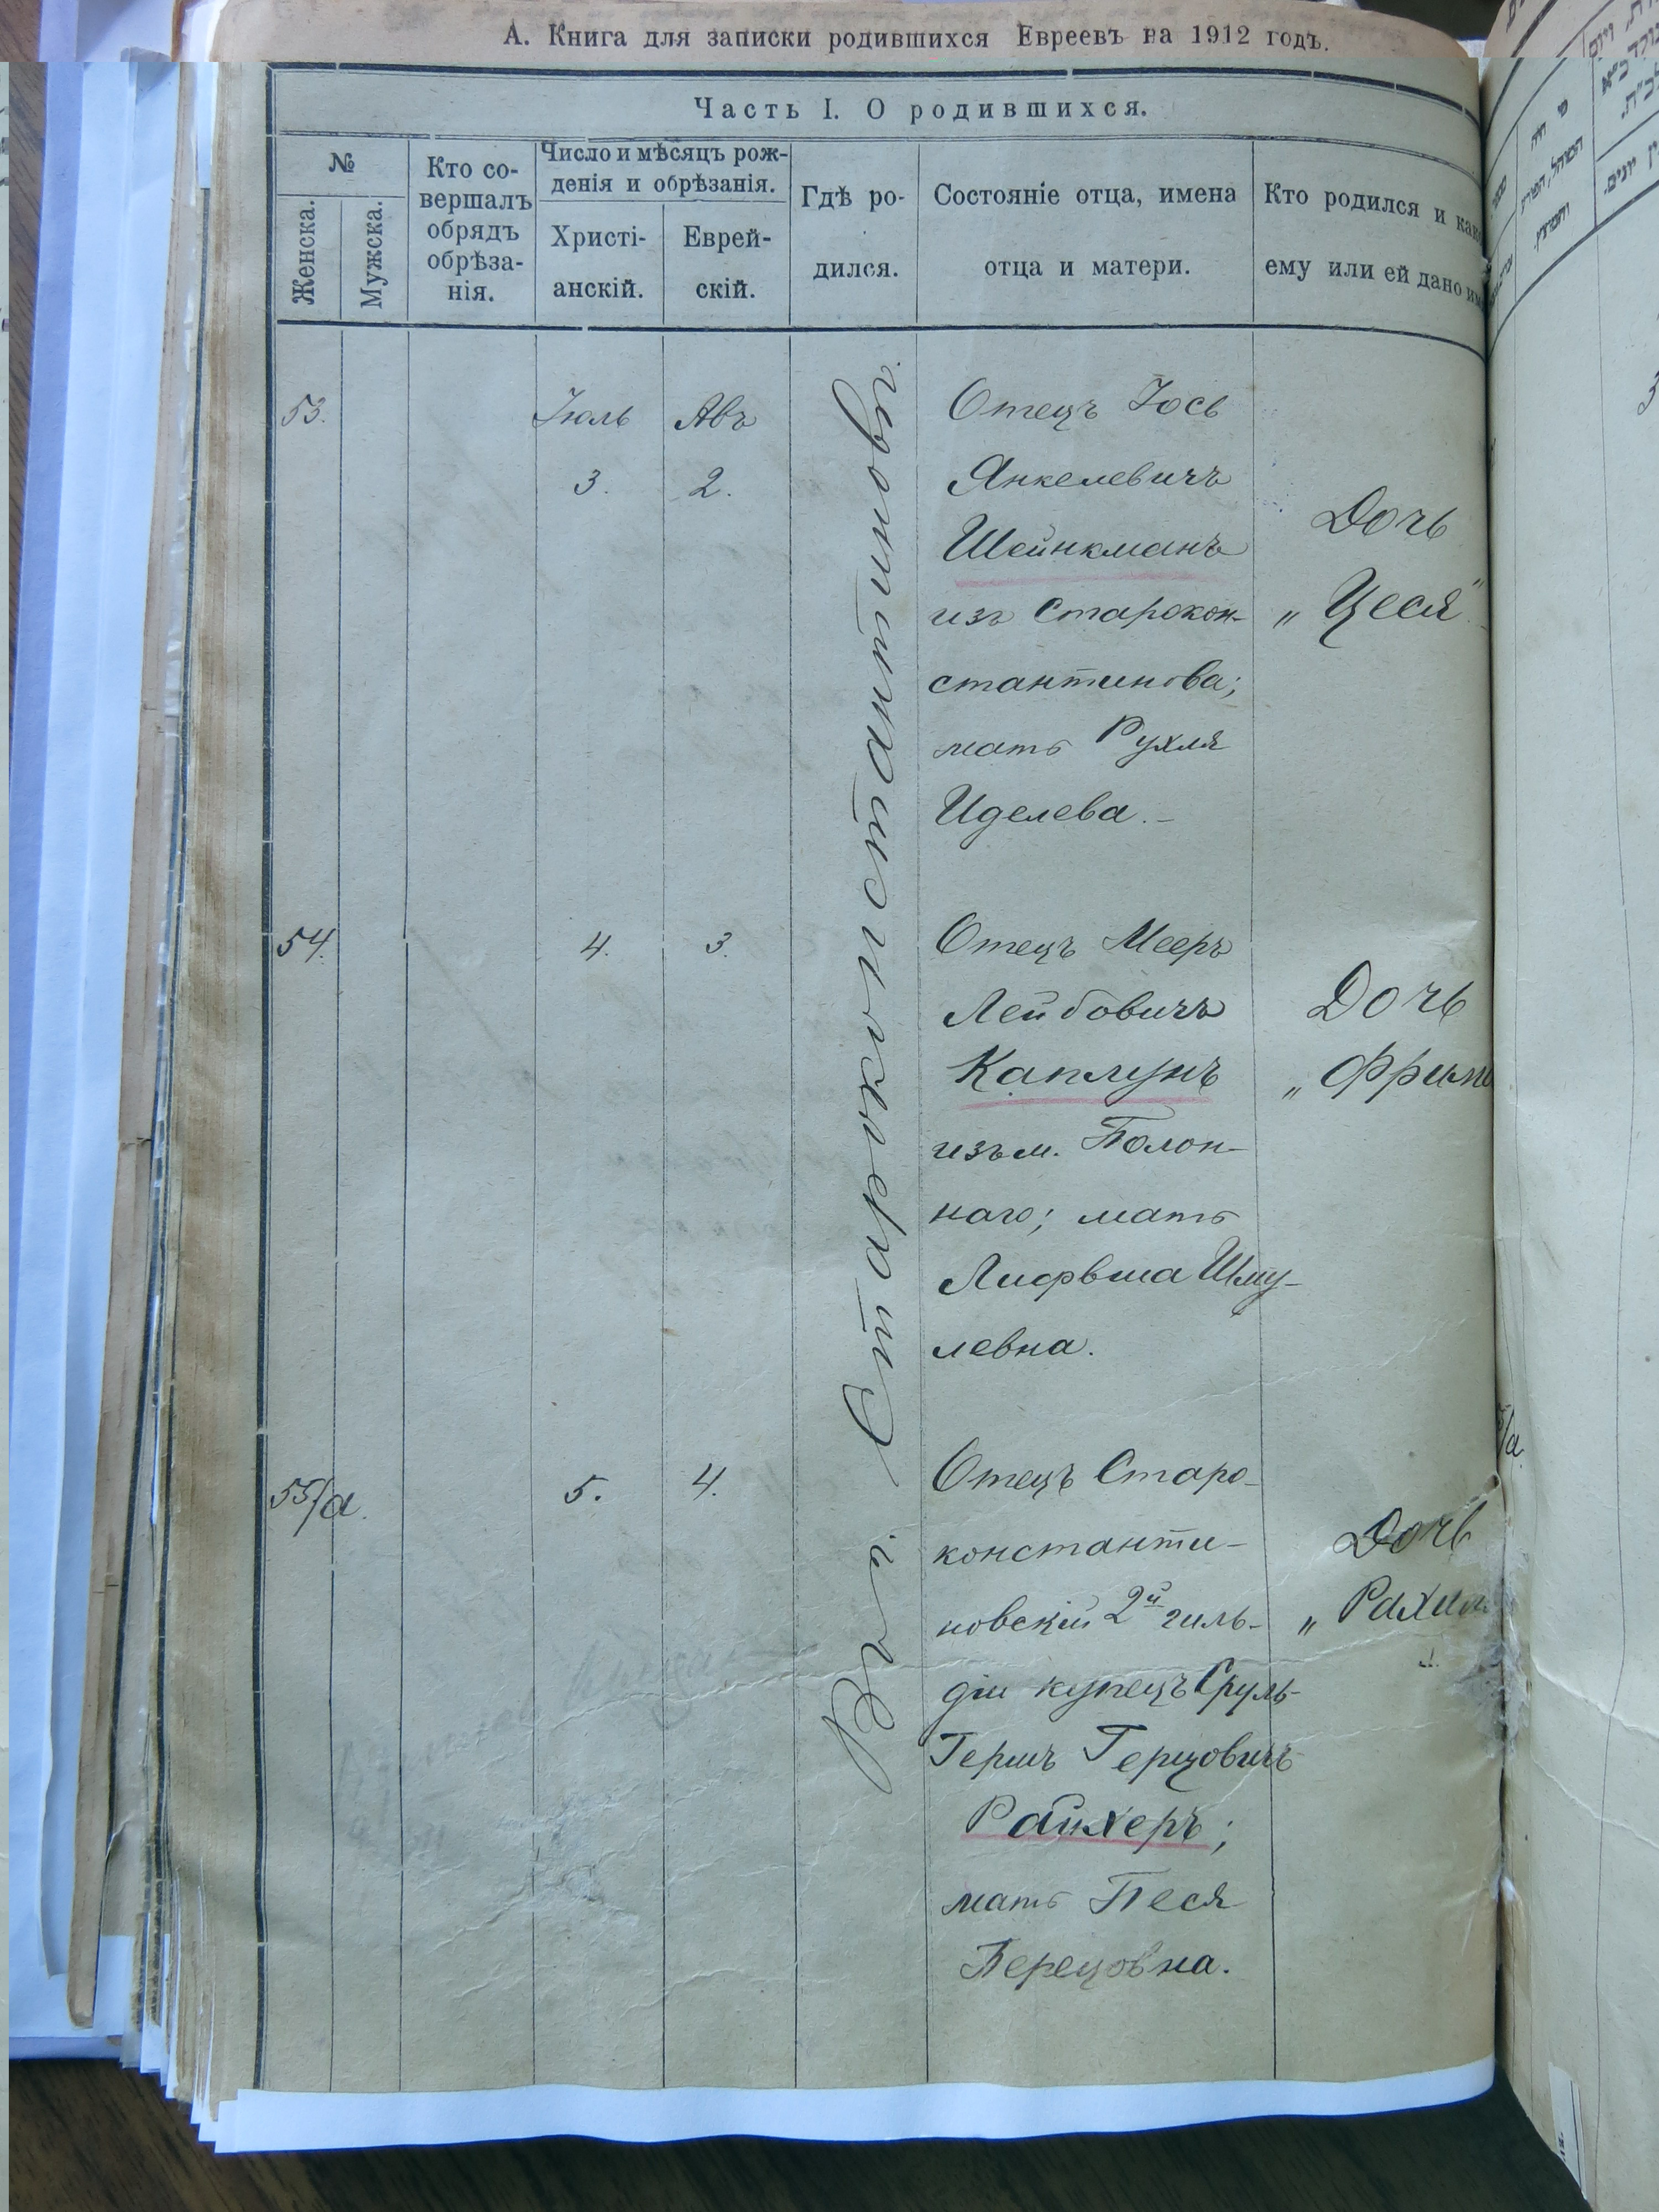 А. Книга для записки родившихся Евреевъ на 1912 годъ.
Часть I. О родившихся.
№
Женска.
Мужска.
Кто со-
вершалъ
обрядъ
обрѣза-
нія.
Число и мѣсяцъ рож-
денія и обрѣзанія.
Христі-
анскій.
Еврей-
скій.
Гдѣ ро-
дился.
Состояніе отца, имена
отца и матери.
Кто родился и како
ему или ей дано им
Въ г. Староконстантиновѣ.
53.
Іюль
3.
Авъ
2.
Отецъ Іось
Янкелевичъ
Шейнкманъ
изъ Старокон-
стантинова;
мать Рухля
Иделева.-
Дочь
„Цеся"
54.
4.
3.
Отецъ Мееръ
Лейбовичъ
Каплунъ
изъ м. Полон-
наго; мать
Шму-
левна.
Дочь
55/а.
5.
4.
Отецъ Старо-
константи-
новскій 2й гиль-
діи купецъ Сруль-
Гершъ Герцовичъ
Райхеръ;
мать Песя
Перецовна.
Дочь